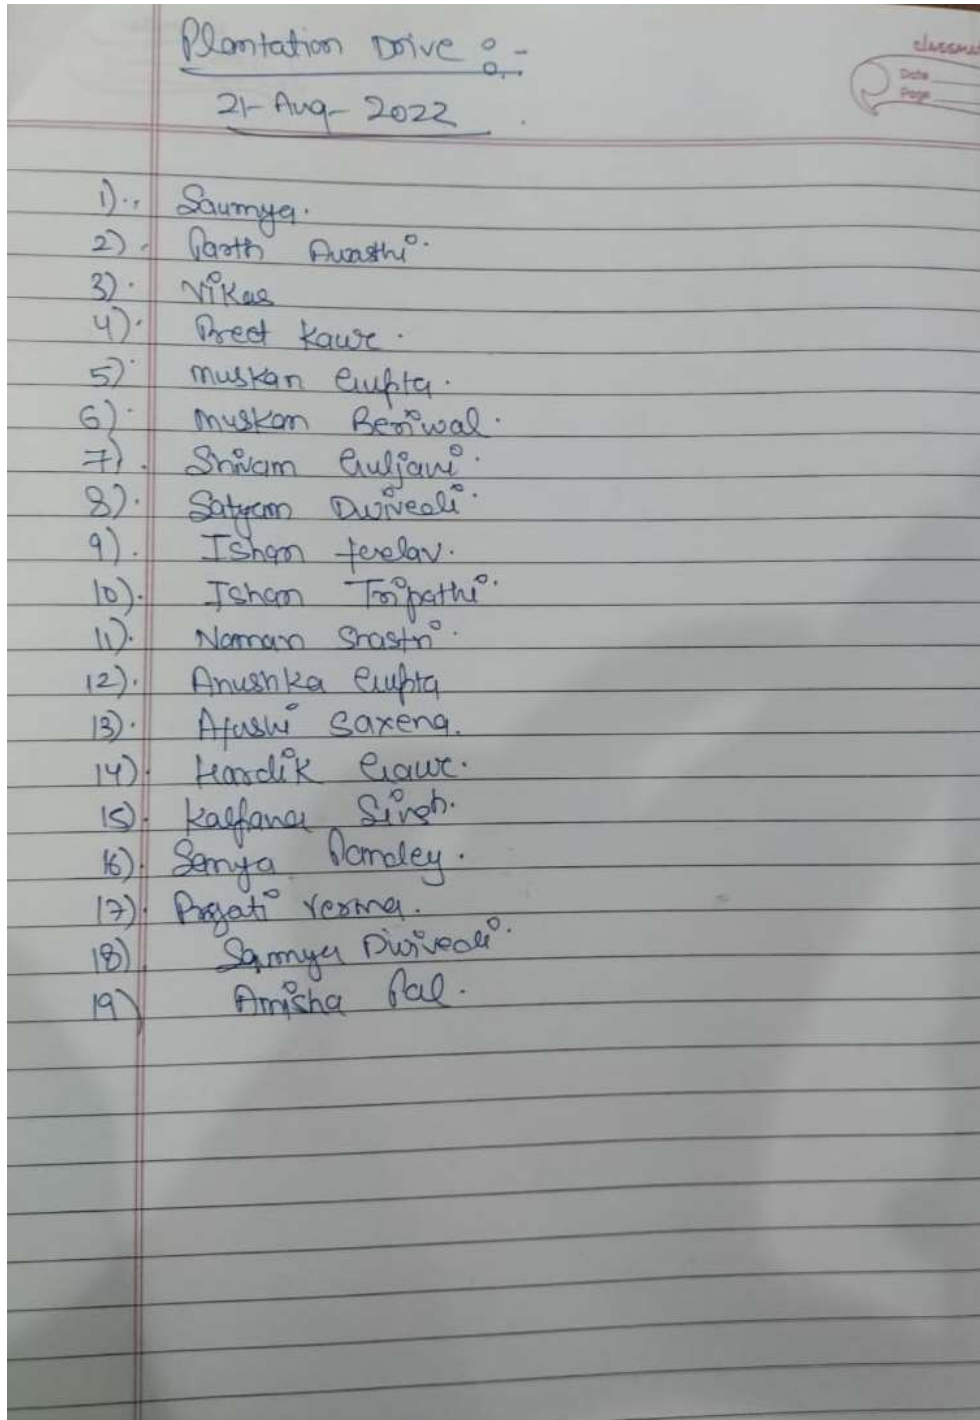 Plantation Drive :-
21-Aug-2022
classmate
Date
Page
1). Saumya.
2). Parth Awasthi.
3). Vikas
4). Preet Kaur.
5) Muskan Gupta.
6). Muskan Beriwal.
7). Shivam Guljani.
8). Satyam Dwivedi.
9). Ishan
10). Ishan Tripathi.
11). Naman Shastri.
12). Anushka Gupta
13). Ayushi Saxena.
14). Hardik Gaur.
15). Kalpana Singh.
16). Pandey.
17). Pragati Verma.
18) Samya Dwivedi.
19) Amisha Pal.